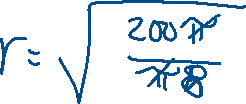 r = √(200π / π8)